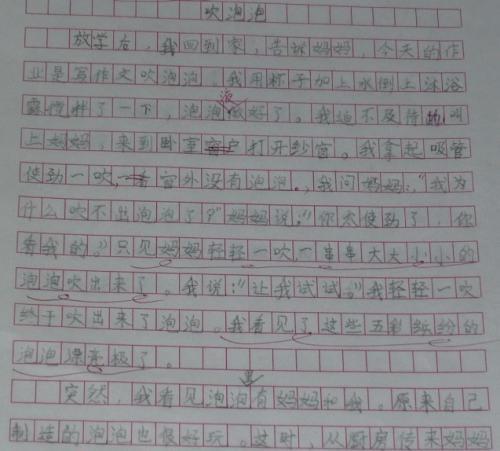 吹泡泡
放学后，我回到家，告诉妈妈，今天的作
业是写作文吹泡泡，我用杯子加上水倒上沐浴
露搅拌了一下，泡泡液做好了。我迫不及待的叫
上妈妈，来到卧室窗户打开纱窗。我拿起吸管
使劲一吹，一看窗外没有泡泡。，我问妈妈：“我为
什么吹不出泡泡了？”妈妈说：“你太使劲了，你
看我的。”只见妈妈轻轻一吹，一串串大大小小的
泡泡吹出来了。我说：“让我试试。”我轻轻一吹
终于吹出来了泡泡。我看见了这些五彩缤纷的
泡泡漂亮极了。
突然，我看见泡泡里有妈妈和我。原来自己
制造的泡泡也很好玩。这时，从厨房传来妈妈